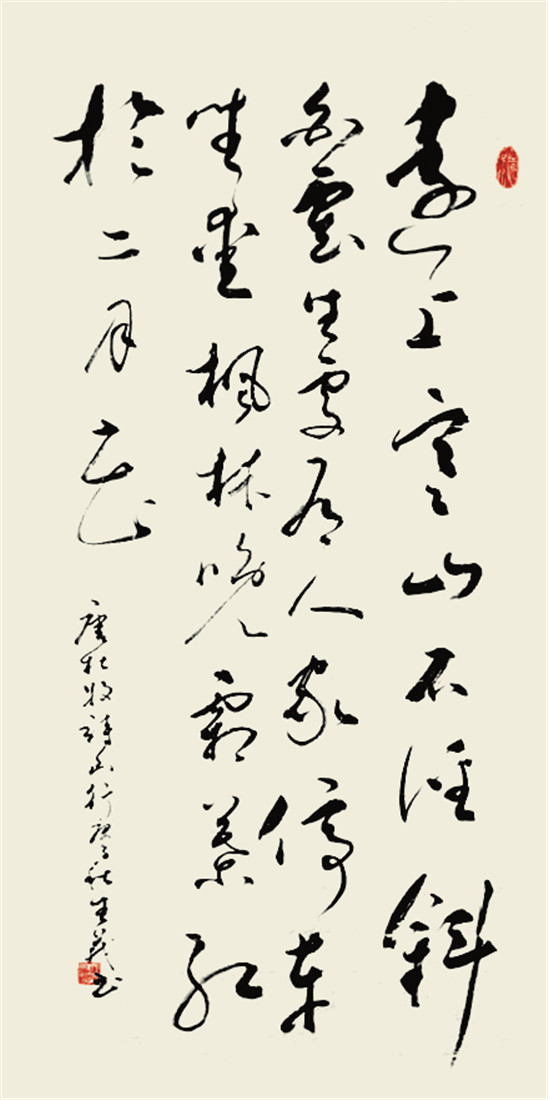 遠上寒山石徑斜
白雲生處有人家停車
坐愛楓林晚霜葉紅
於二月花
唐杜牧詩山行